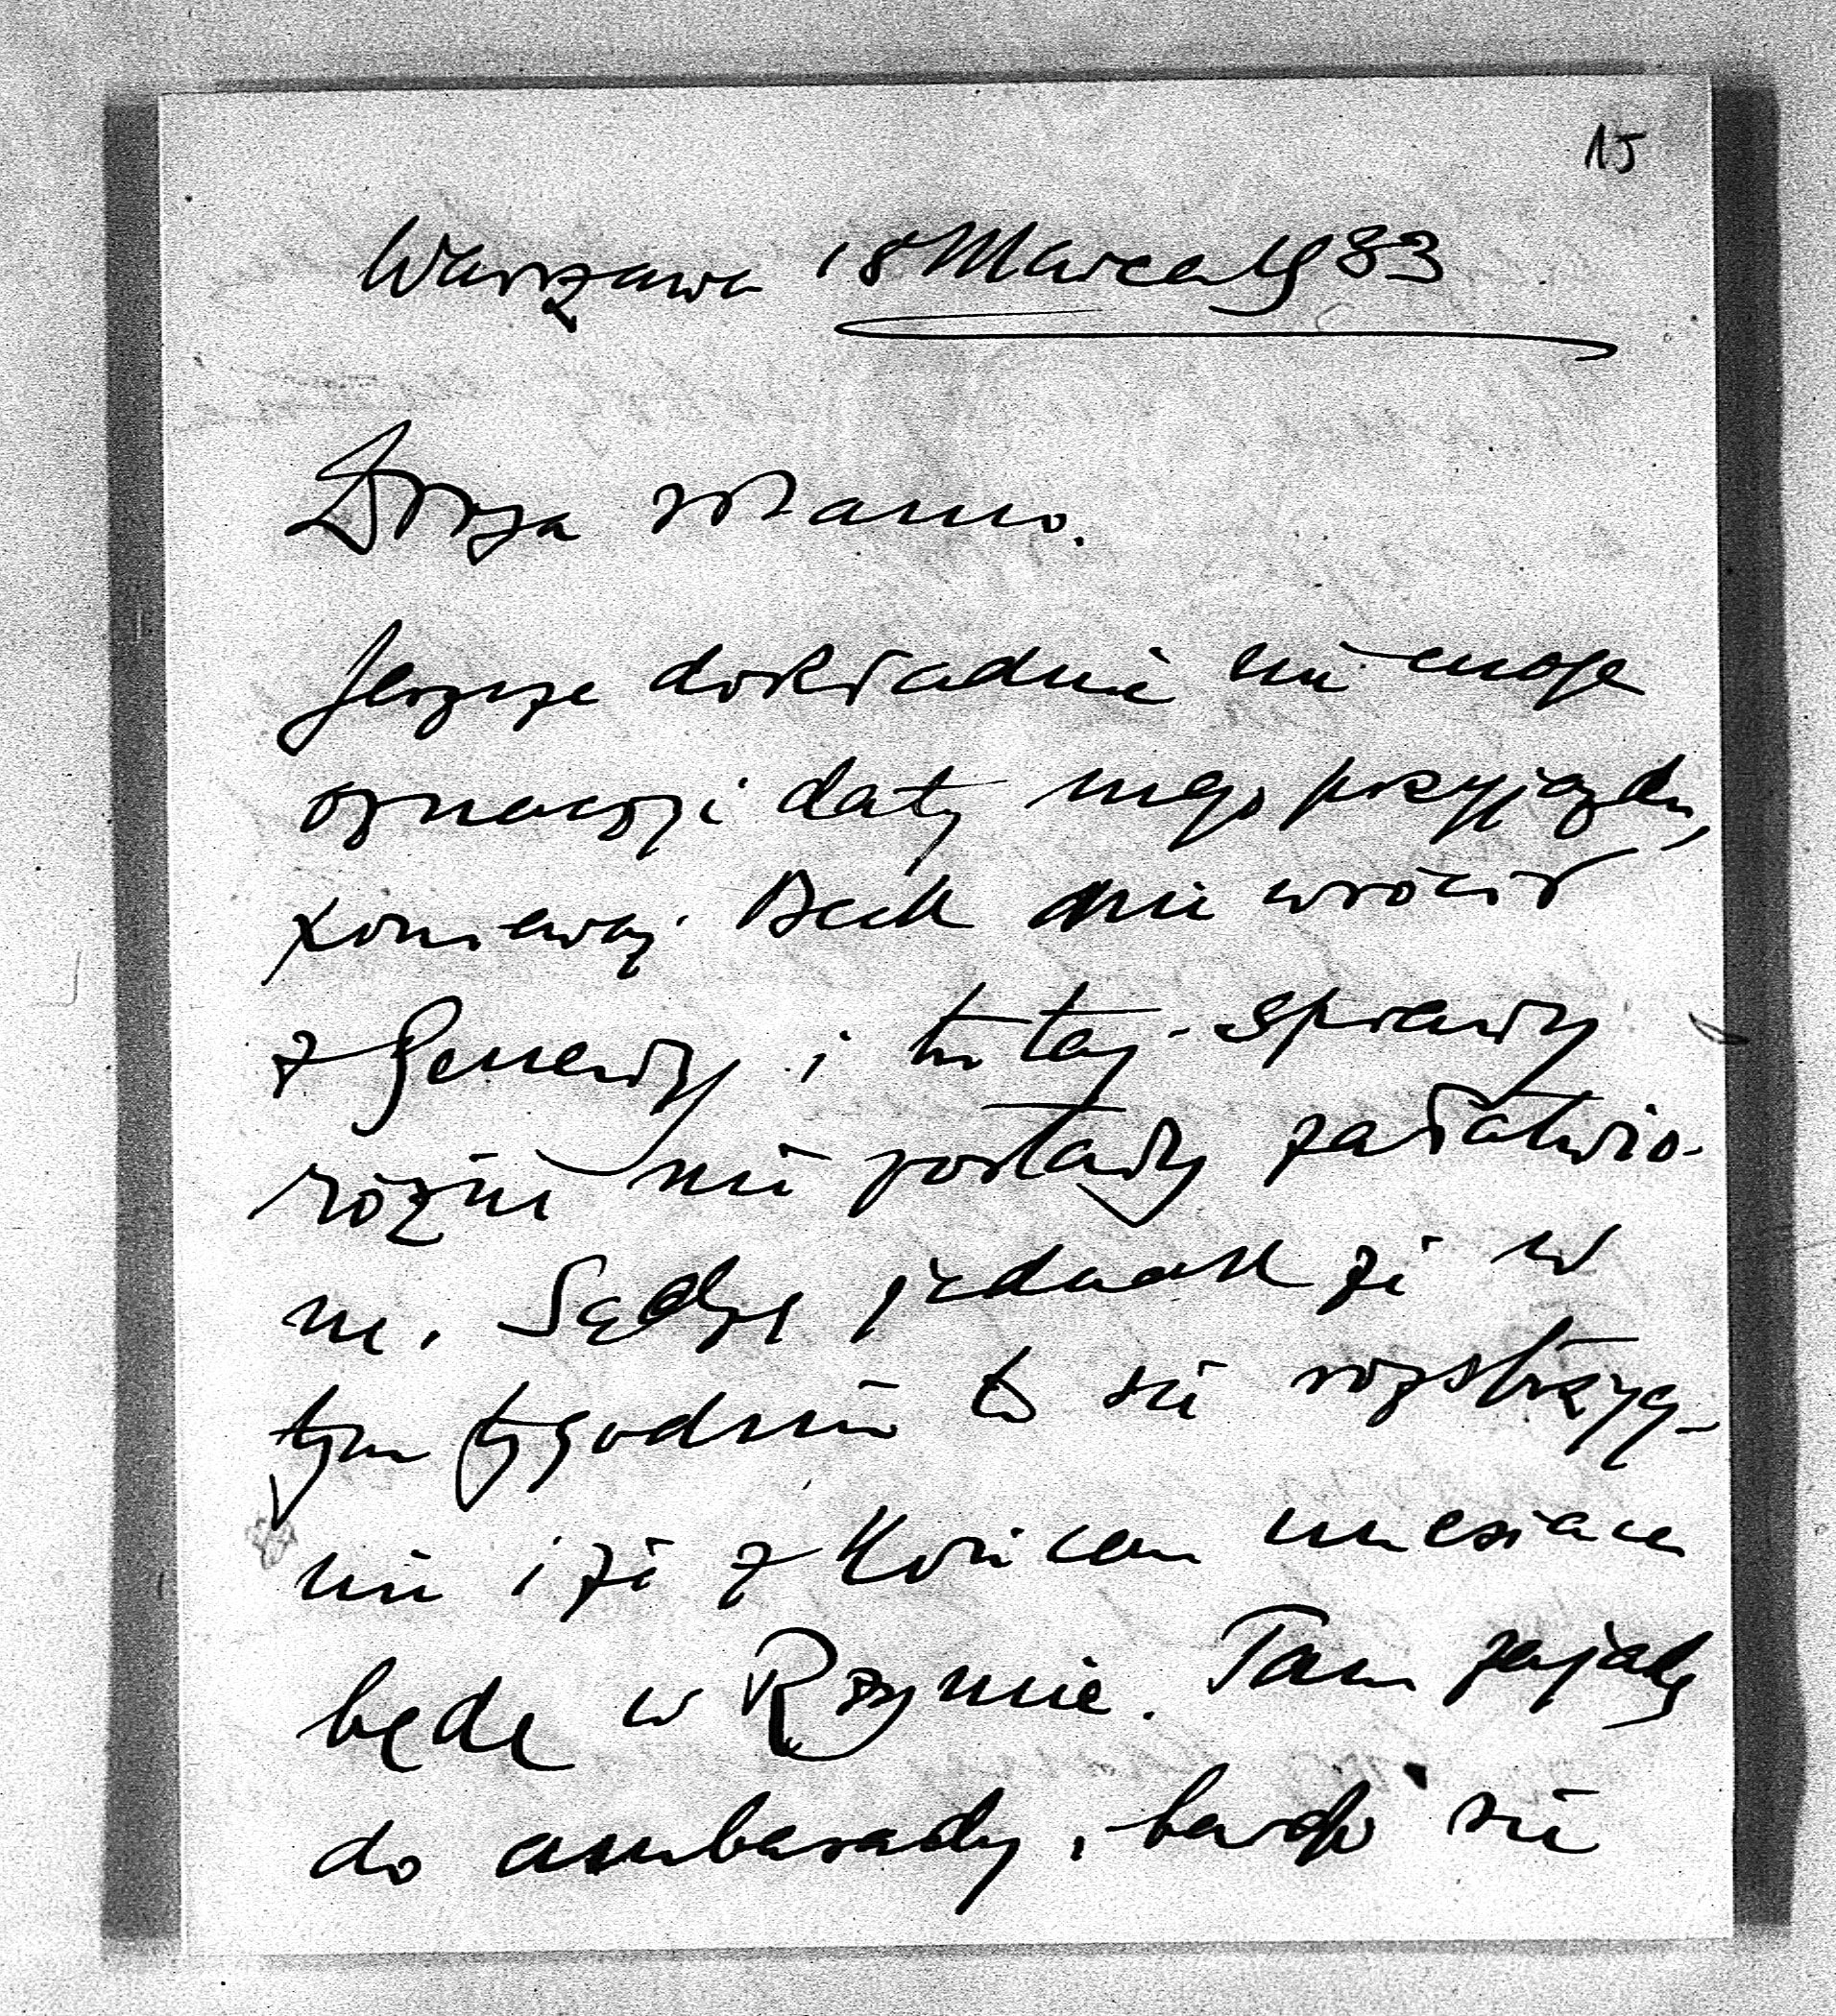 15
Warszawa 18 Marca 1933
Droga Mamo.
Jeszcze dokładnie nie mogę
oznaczyć daty mego przyjazdu,
ponieważ Beck nie wrócił
z Genewy i tutaj sprawy
różne nie zostały załatwio-
ne. Sądzę jednak że w
tym tygodniu to się rozstrzyg-
nie i że z końcem miesiąca
będę w Rzymie. Tam zajadę
do ambasady, bardzo się